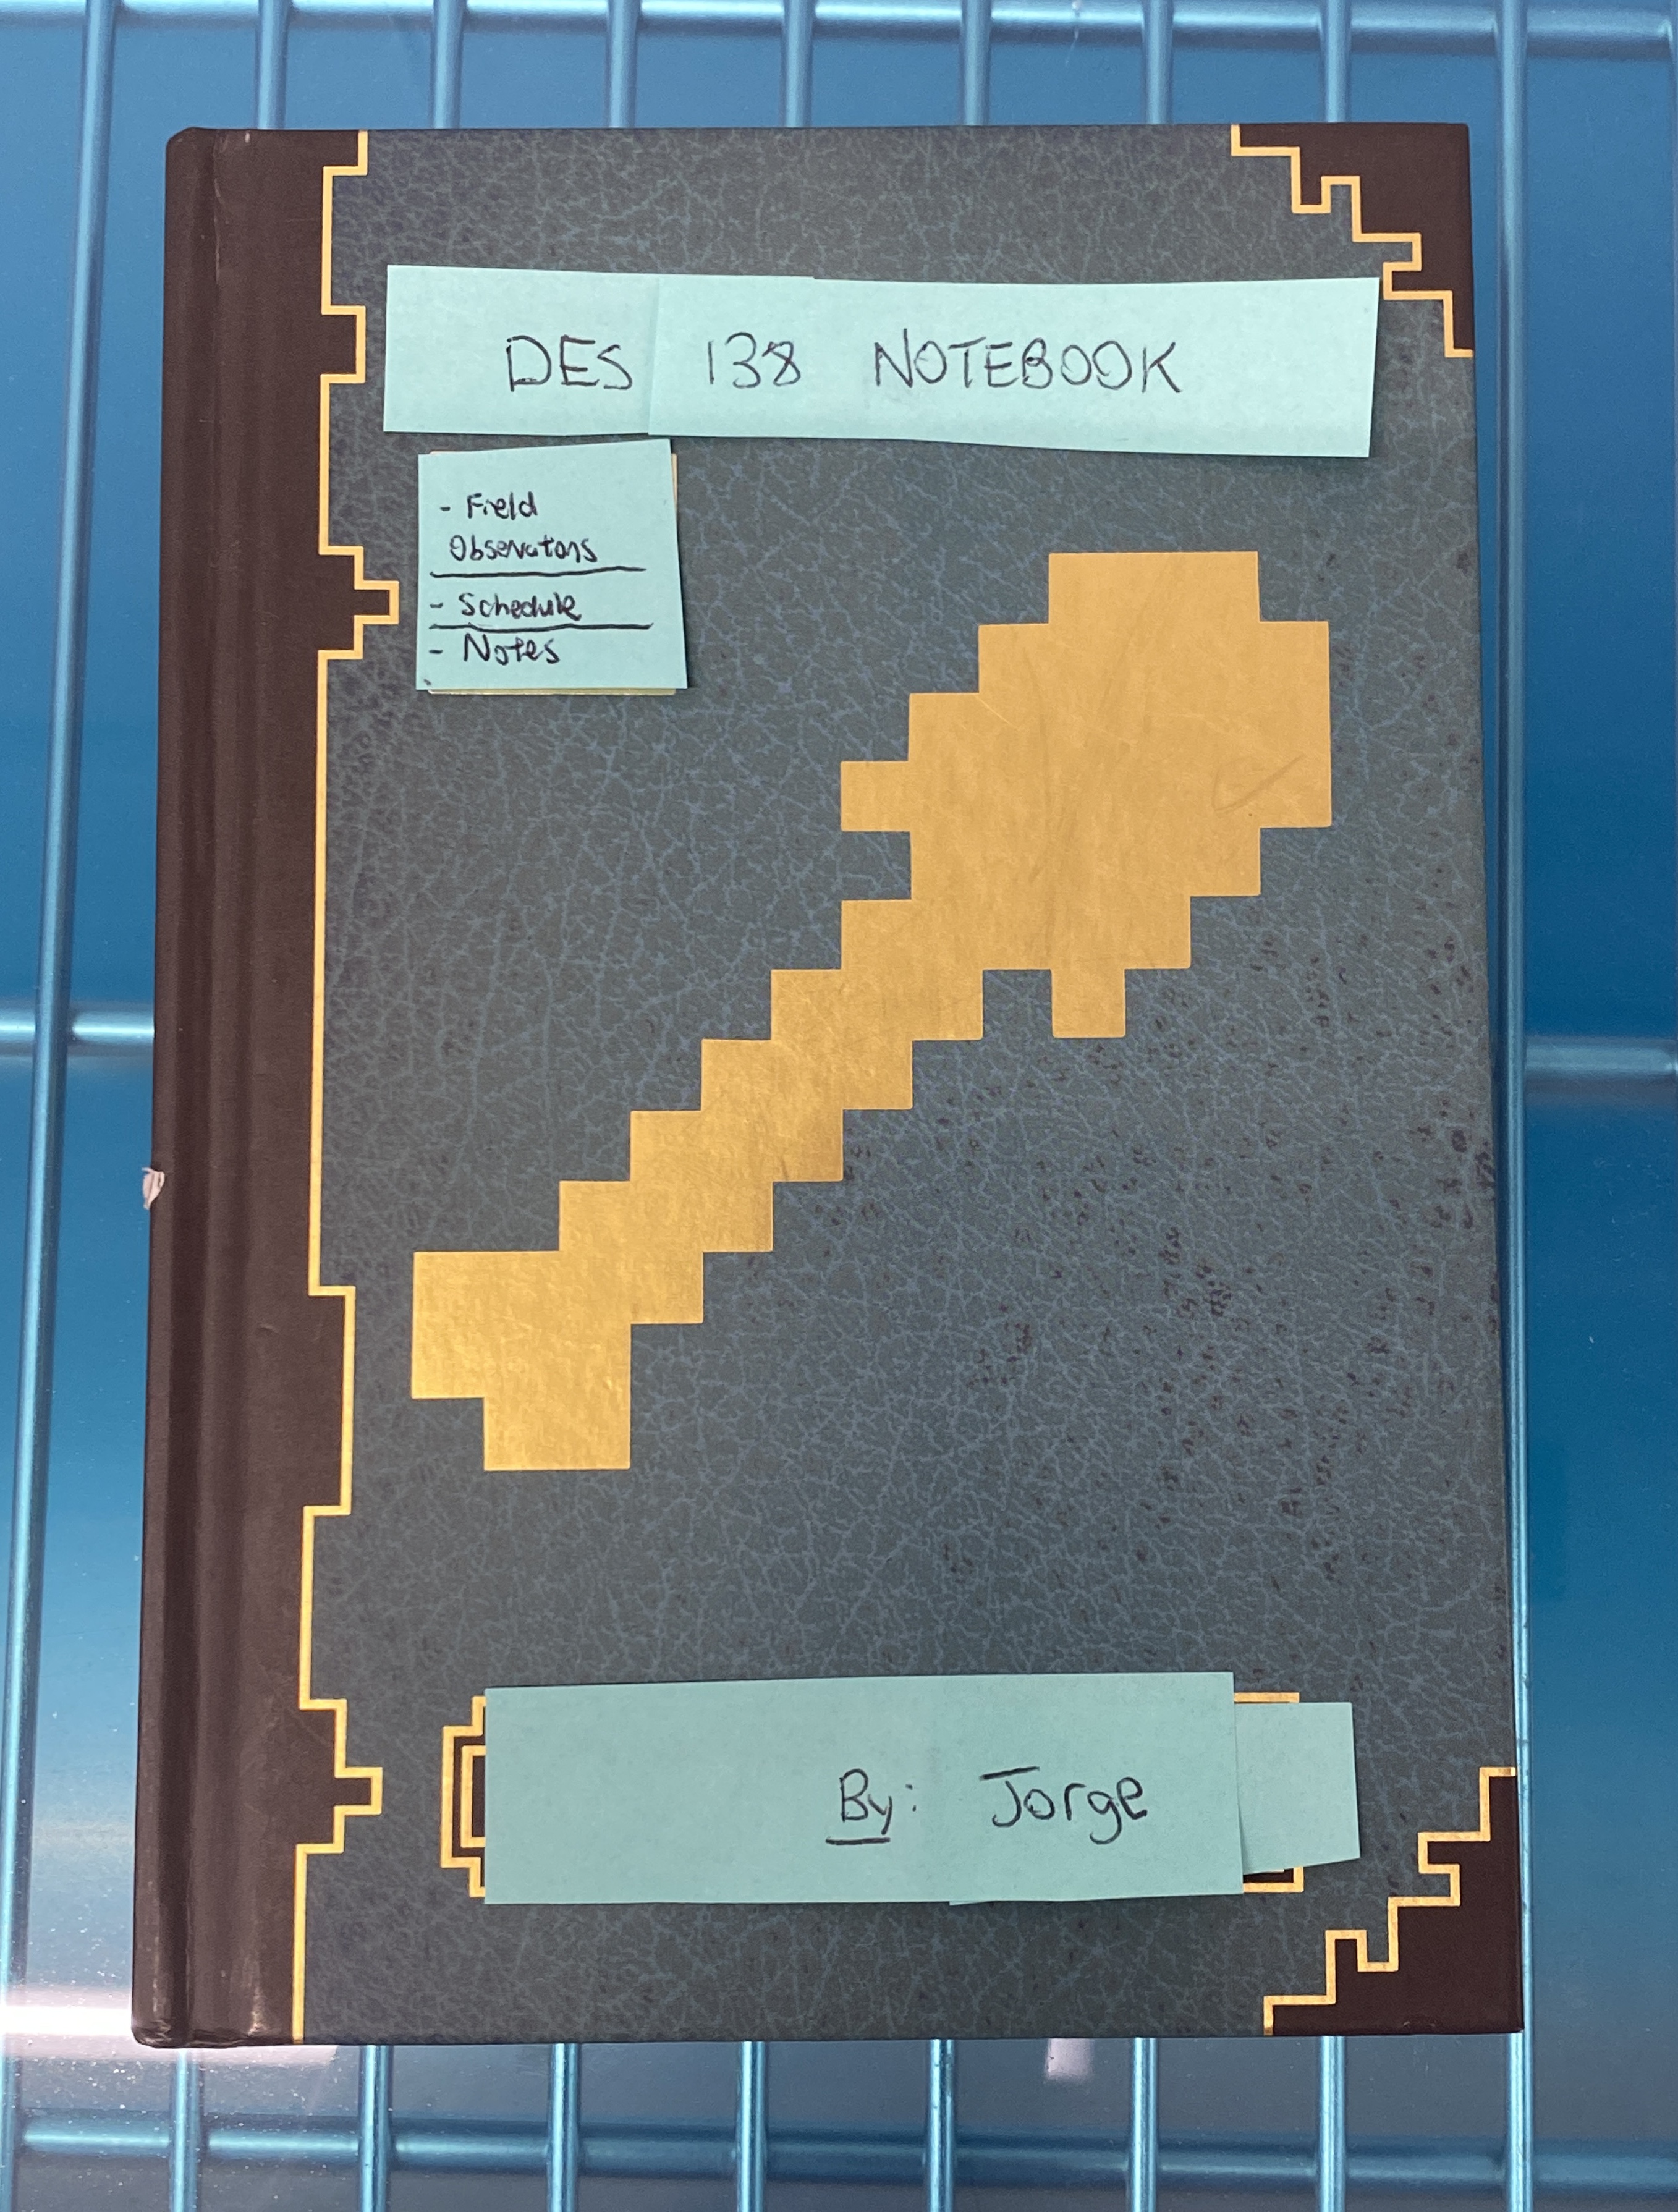 DES 138 NOTEBOOK
- Field
Observatons
- Schedule
- Notes
By: Jorge